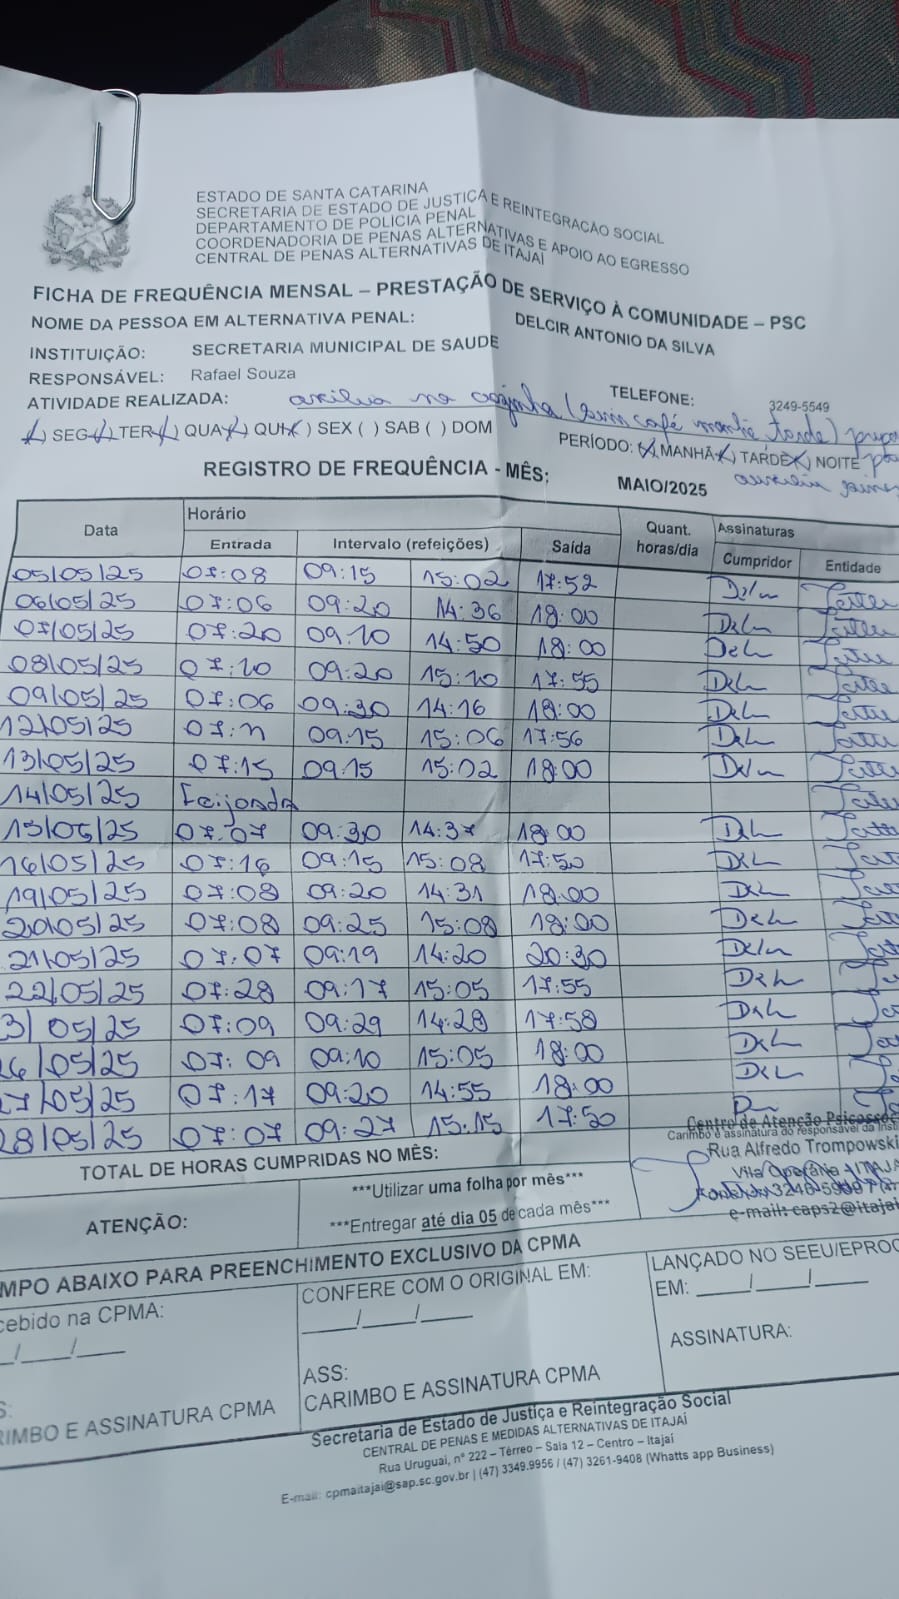 ESTADO DE SANTA CATARINA
SECRETARIA DE ESTADO DE JUSTIÇA E REINTEGRAÇÃO SOCIAL
DEPARTAMENTO DE POLÍCIA PENAL
COORDENADORIA DE PENAS ALTERNATIVAS E APOIO AO EGRESSO
CENTRAL DE PENAS ALTERNATIVAS DE ITAJAÍ
FICHA DE FREQUÊNCIA MENSAL – PRESTAÇÃO DE SERVIÇO À COMUNIDADE – PSC
NOME DA PESSOA EM ALTERNATIVA PENAL: DELCIR ANTONIO DA SILVA
INSTITUIÇÃO: SECRETARIA MUNICIPAL DE SAUDE
RESPONSÁVEL: Rafael Souza TELEFONE: 3249-5549
ATIVIDADE REALIZADA: auxilia na cozinha (café manhã tarde)
(X) SEG (X) TER (X) QUA (X) QUI (X) SEX ( ) SAB ( ) DOM PERÍODO: (X) MANHÃ (X) TARDE (X) NOITE
auxilia
REGISTRO DE FREQUÊNCIA - MÊS: MAIO/2025
Data Horário Quant. horas/dia Assinaturas
Entrada Intervalo (refeições) Saída Cumpridor Entidade
05/05/25 07:08 09:15 15:02 17:52
06/05/25 07:06 09:20 14:36 18:00
07/05/25 07:20 09:10 14:50 18:00
08/05/25 07:10 09:20 15:10 17:55
09/05/25 07:06 09:30 14:16 18:00
12/05/25 07:11 09:15 15:06 17:56
13/05/25 07:15 09:15 15:02 18:00
14/05/25 Feijoada
15/05/25 07:07 09:30 14:37 18:00
16/05/25 07:16 09:15 15:08 17:50
19/05/25 07:08 09:20 14:31 18:00
20/05/25 07:08 09:25 15:08 18:00
21/05/25 07:07 09:19 14:20 20:30
22/05/25 07:28 09:17 15:05 17:55
3/05/25 07:09 09:29 14:28 17:58
26/05/25 07:09 09:10 15:05 18:00
27/05/25 07:17 09:20 14:55 18:00
28/05/25 07:07 09:27 15:15 17:50
TOTAL DE HORAS CUMPRIDAS NO MÊS:
Centro de Atenção Psicossoc
Carimbo e assinatura do responsável da Insti
Rua Alfredo Trompowski
Vila Operária - ITAJA
e-mail: caps2@itajai
ATENÇÃO:
***Utilizar uma folha por mês***
***Entregar até dia 05 de cada mês***
MPO ABAIXO PARA PREENCHIMENTO EXCLUSIVO DA CPMA
cebido na CPMA:
_/___/___
S:
RIMBO E ASSINATURA CPMA
CONFERE COM O ORIGINAL EM:
___/___/___
ASS:
CARIMBO E ASSINATURA CPMA
LANÇADO NO SEEU/EPROC
EM: ____/____/____
ASSINATURA:
Secretaria de Estado de Justiça e Reintegração Social
CENTRAL DE PENAS E MEDIDAS ALTERNATIVAS DE ITAJAÍ
Rua Uruguai, n° 222 – Térreo – Sala 12 – Centro – Itajaí
E-mail: cpmaitajai@sap.sc.gov.br | (47) 3349.9956 / (47) 3261-9408 (Whatts app Business)